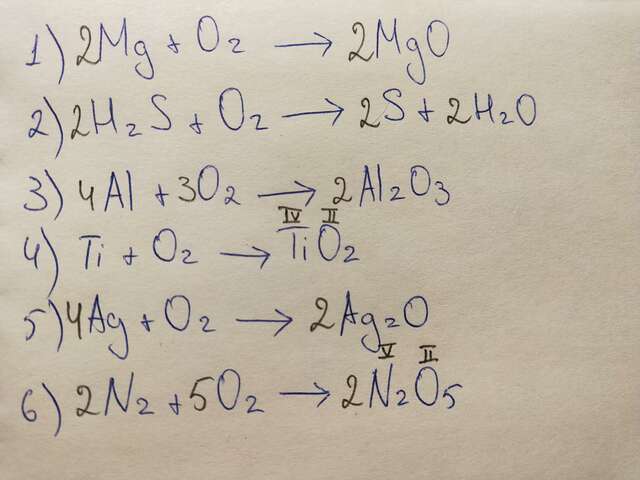 1) 2Mg + O₂ → 2MgO
2) 2H₂S + O₂ → 2S + 2H₂O
3) 4Al + 3O₂ → 2Al₂O₃
IV II
4) Ti + O₂ → TiO₂
5) 4Ag + O₂ → 2Ag₂O
V II
6) 2N₂ + 5O₂ → 2N₂O₅